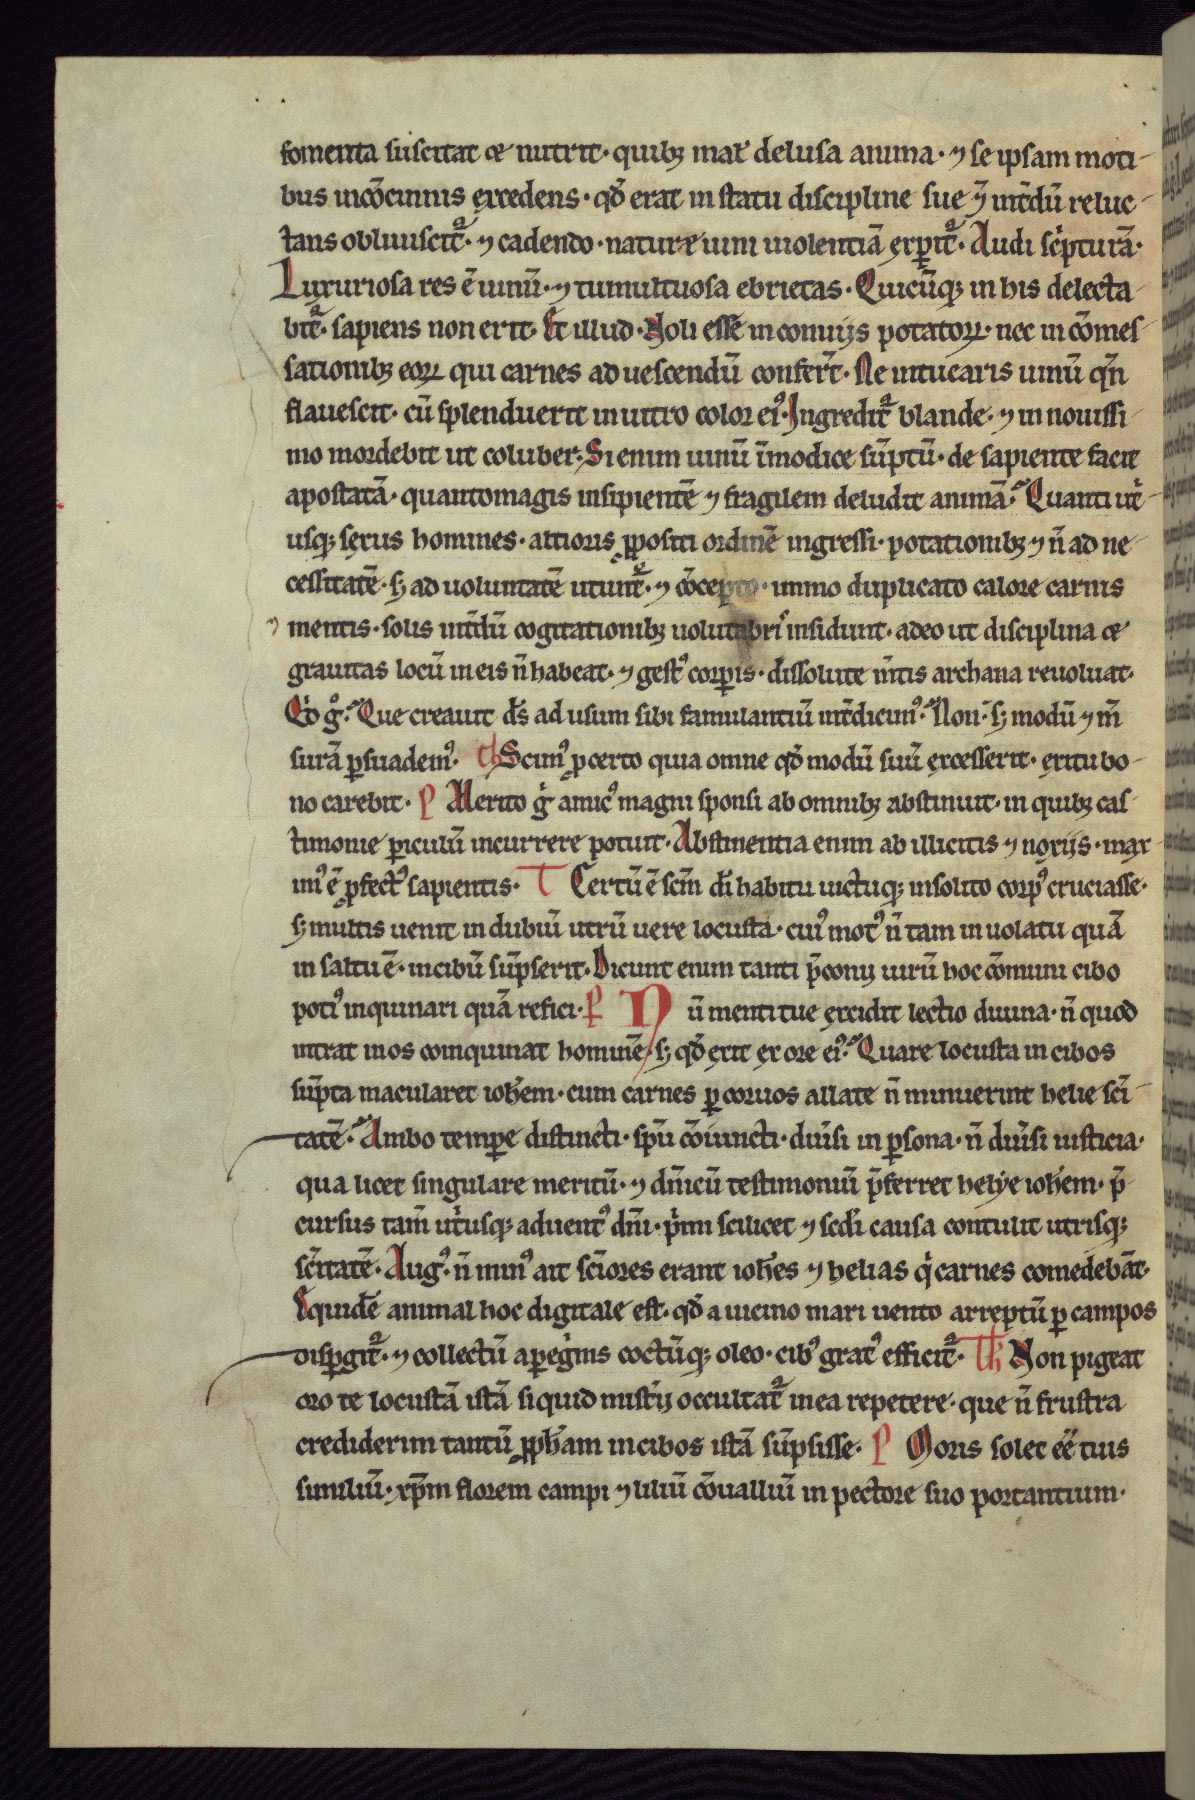 fomenta suscitat et nutrit· quibꝫ mat᷑ delusa anima· ⁊ se ipsam moti-
bus incōcinnis excedens· qd̄ erat in statu discipline sue ⁊̄ int̄dū reluc-
tans obliuiscit᷑· ⁊ cadendo· naturę uim uiolentiā exꝑit᷑· Audi sc̓pturā·
Luxuriosa res ē uinū· ⁊ tumultuosa ebrietas· Quicūqꝫ in his delecta-
bit᷑· sapiens non erit· Et illud· Noli esse in conuiijs potatoꝝ· nec in cōmes-
sationibꝫ eoꝝ qui carnes ad uescendū confer̄t· Ne intucaris uinū qn̄
flauescit· cū splenduerit in uitro color eiꝰ· Ingredit᷑ blande· ⁊ in nouissi-
mo mordebit ut coluber; Si enim uinū īmodice sūptū· de sapiente facit
apostatā· quantomagis insipientē ⁊ fragilem deludit animā· Quanti ut̓-
usqꝫ sexus homines· altioris ꝓpositi ordinē ingressi· potationibꝫ ⁊ n̄ ad ne-
cessitatē· sꝫ ad uoluntatē utunt᷑· ⁊ cōcepto· immo duplicato calore carnis
⁊ mentis· solis int̄dū cogitationibꝫ uolutabri insidunt· adeo ut disciplina et
grauitas locū in eis n̄ habeat· ⁊ gestꝰ corꝑis· dissolute m̄tis archana reuoluat·
Qd̓ g̊· Que creauit dš ad usum sibi famulantiū int̄dicimꝰ· Non· sꝫ modū ⁊ m̄-
surā ꝑsuademꝰ· Th Scimꝰ ꝓ certo quia omne qd̄ modū suū excesserit· exitu bo-
no carebit· P Merito g̓ amicꝰ magni sponsi ab omnibꝫ abstinuit· in quibꝫ cas-
timonie ꝑiculū incurrere potuit· Abstinentia enim ab illicitis ⁊ noxijs· max-
imꝰ ē ꝓfectꝰ sapientis· T Certū ē sc̄m dī habitu uictuqꝫ insolito corpꝰ cruciasse·
sꝫ multis uenit in dubiū utrū uere locusta· cuiꝰ motꝰ n̄ tam in uolatu quā
in saltu ē· in cibū sūpserit· Dicunt enim tanti p̄conij uirū hoc cōmuni cibo
potiꝰ inquinari quā refici· P Nū menti tue excidit lectio diuina· n̄ quod
intrat in os coinquinat hominē· sꝫ qd̄ exit ex ore eiꝰ· Quare locusta in cibos
sūpta macularet ioh̄em· cum carnes ꝑ coruos allate n̄ minuerint helie sc̄i-
tatē· Ambo temꝑe distincti· sp̄u cōiuncti· diu̓si in ꝑsona· n̄ diu̓si iusticia·
qua licet singulare meritū· ⁊ dn̄icū testimoniū p̄ferret helye ioh̄em· p̄-
cursus tam̄ ut̓usqꝫ aduentꝰ dn̄i· p̓mi scilicet ⁊ scd̓i causa contulit utrisqꝫ
sc̄itatē· Augꝰ· n̄ minꝰ ait sc̄iores erant ioh̄es ⁊ helias q̓ carnes comedebāt·
Equidē animal hoc digitale est· qd̄ a uicino mari uento arreptū ꝑ campos
disꝑgit᷑· ⁊ collectū a ꝑeg̓nis coctūqꝫ oleo· cibꝰ gratꝰ efficit᷑· Th Non pigeat
oro te locustā istā si quid mist̓ij occultat᷑ in ea repetere· que n̄ frustra
crediderim tantū ꝓph̄am in cibos istā sūpsisse· P Moris solet eē̄ tuis
similiū· xp̄m florem campi ⁊ liliū cōualliū in pectore suo portantium·